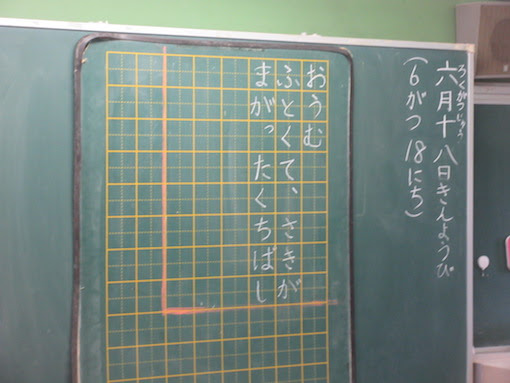 六月十八日きんようび
ろくがつじゅう
(6がつ18にち)
おうむ
ふとくて、さきが
まがったくちばし